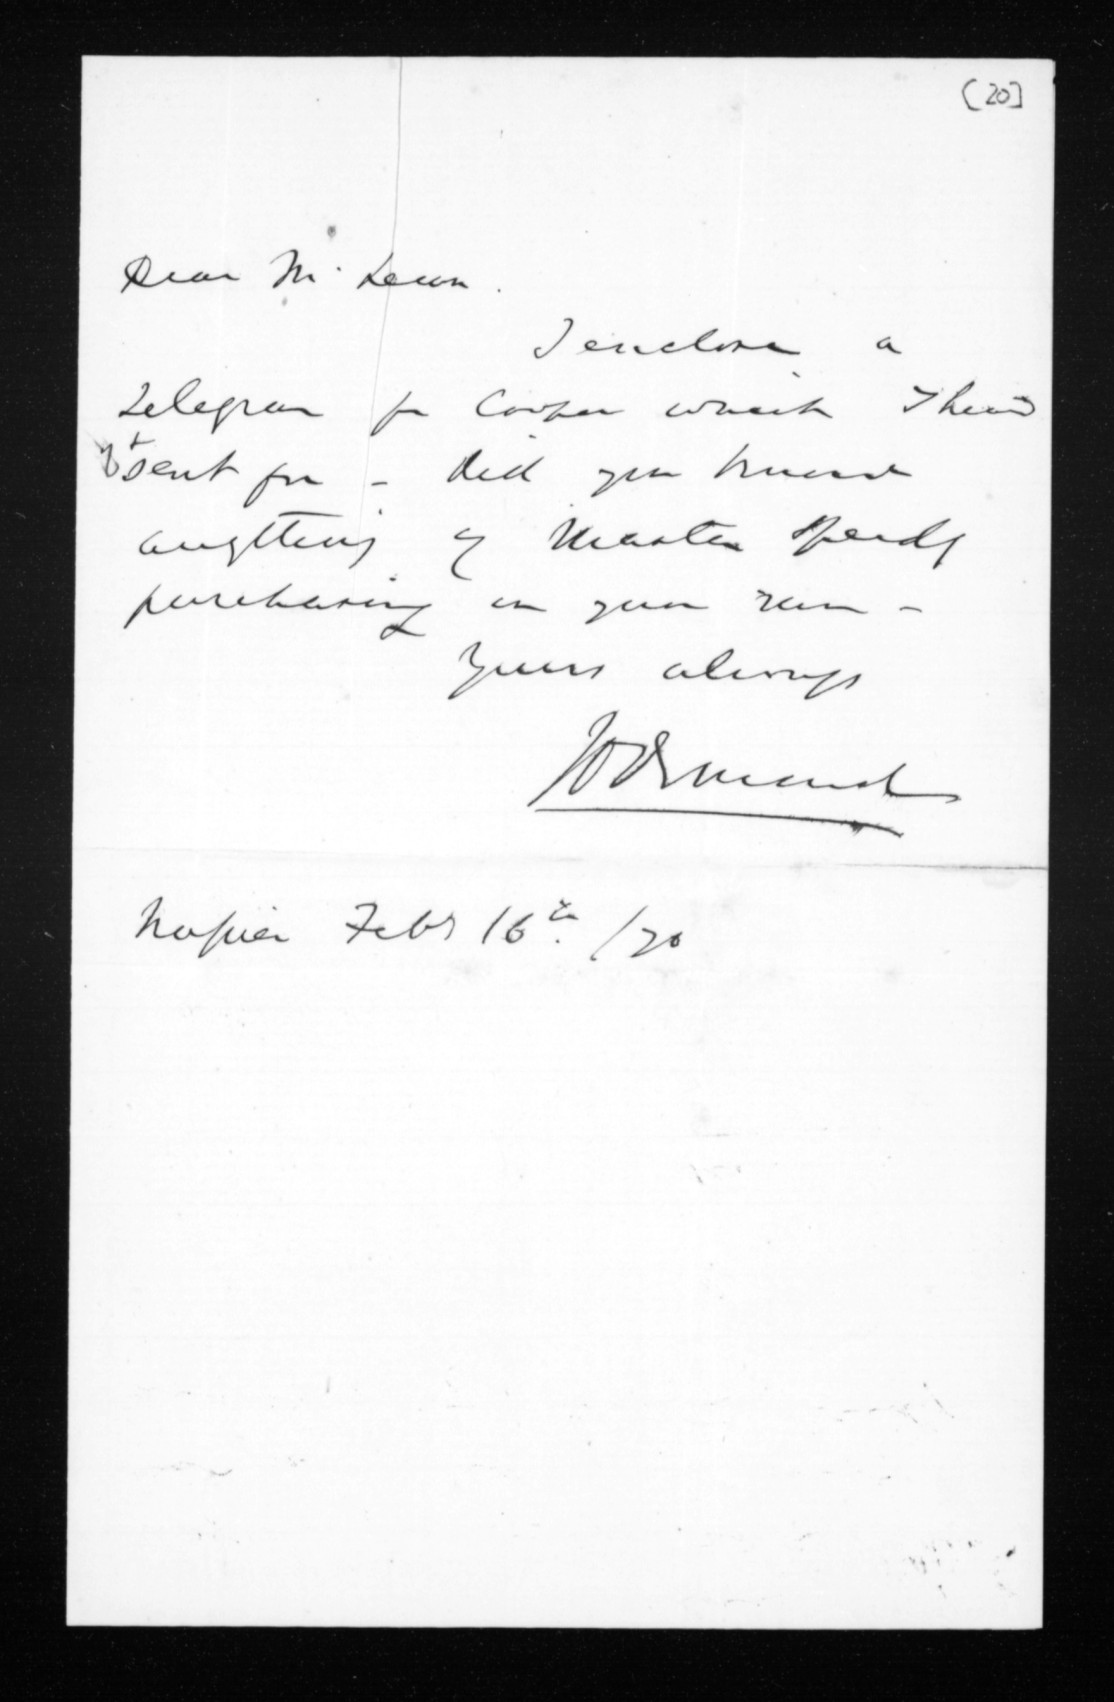 [20]
Dear McLean.
I enclose a
telegram fr Cooper which I have
sent for - Did you know
anything of Master Speedy
purchasing in your run -
Yours always
JDOrmond
Napier Feby 16th /70